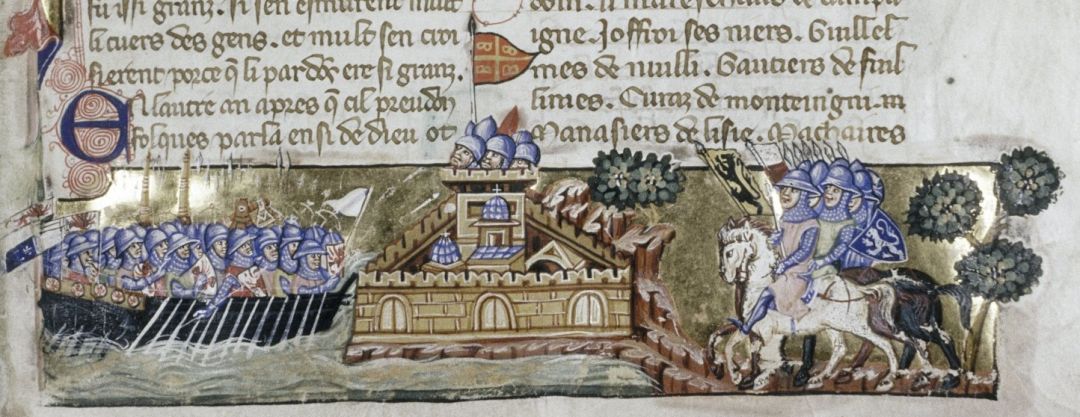 fu issi granz. si sen esmurent mult
li cuers des gens. et mult sen croi
sierent porce q̃ li pardõs ere si granz.
En lautre an apres q̃ cil preudon
folques parla ensi de dieu ot
doin. li mareschaus de champa
igne. Joffroi ses niers. Guillel
mes de nuilli. Gautiers de fuil
limes. Euraz de monteingni. m
Manasiers de lisle. Machaires